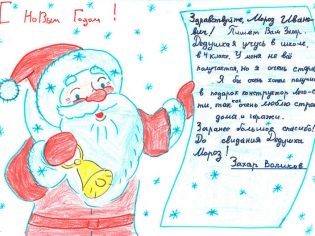 С Новым Годом!
Здравствуйте, Мороз Ивано-
вич! Пишет Вам Захар.
Дедушка я учусь в школе,
в 4 классе. У меня не всё
получается, но я очень стара
Я бы очень хотел получить
в подарок конструктор лего-с
ти, так как очень люблю стро
дома и гаражи.
Заранее большое спасибо!
До свидания Дедушка
Мороз!
Захар Воликов